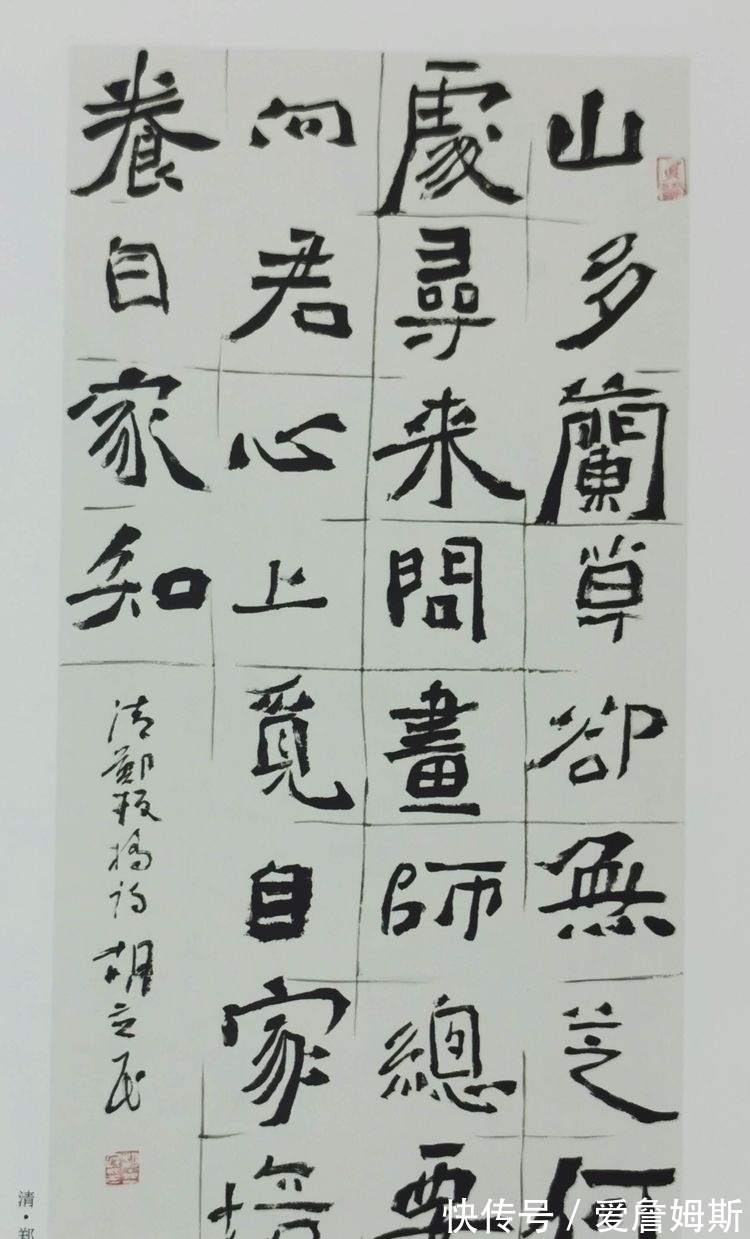 山多蘭草卻無芝何
處尋來問畫師總要
向君心上覓自家培
養自家知
清鄭板橋詩 胡立民
清·郑
快传号 / 爱詹姆斯